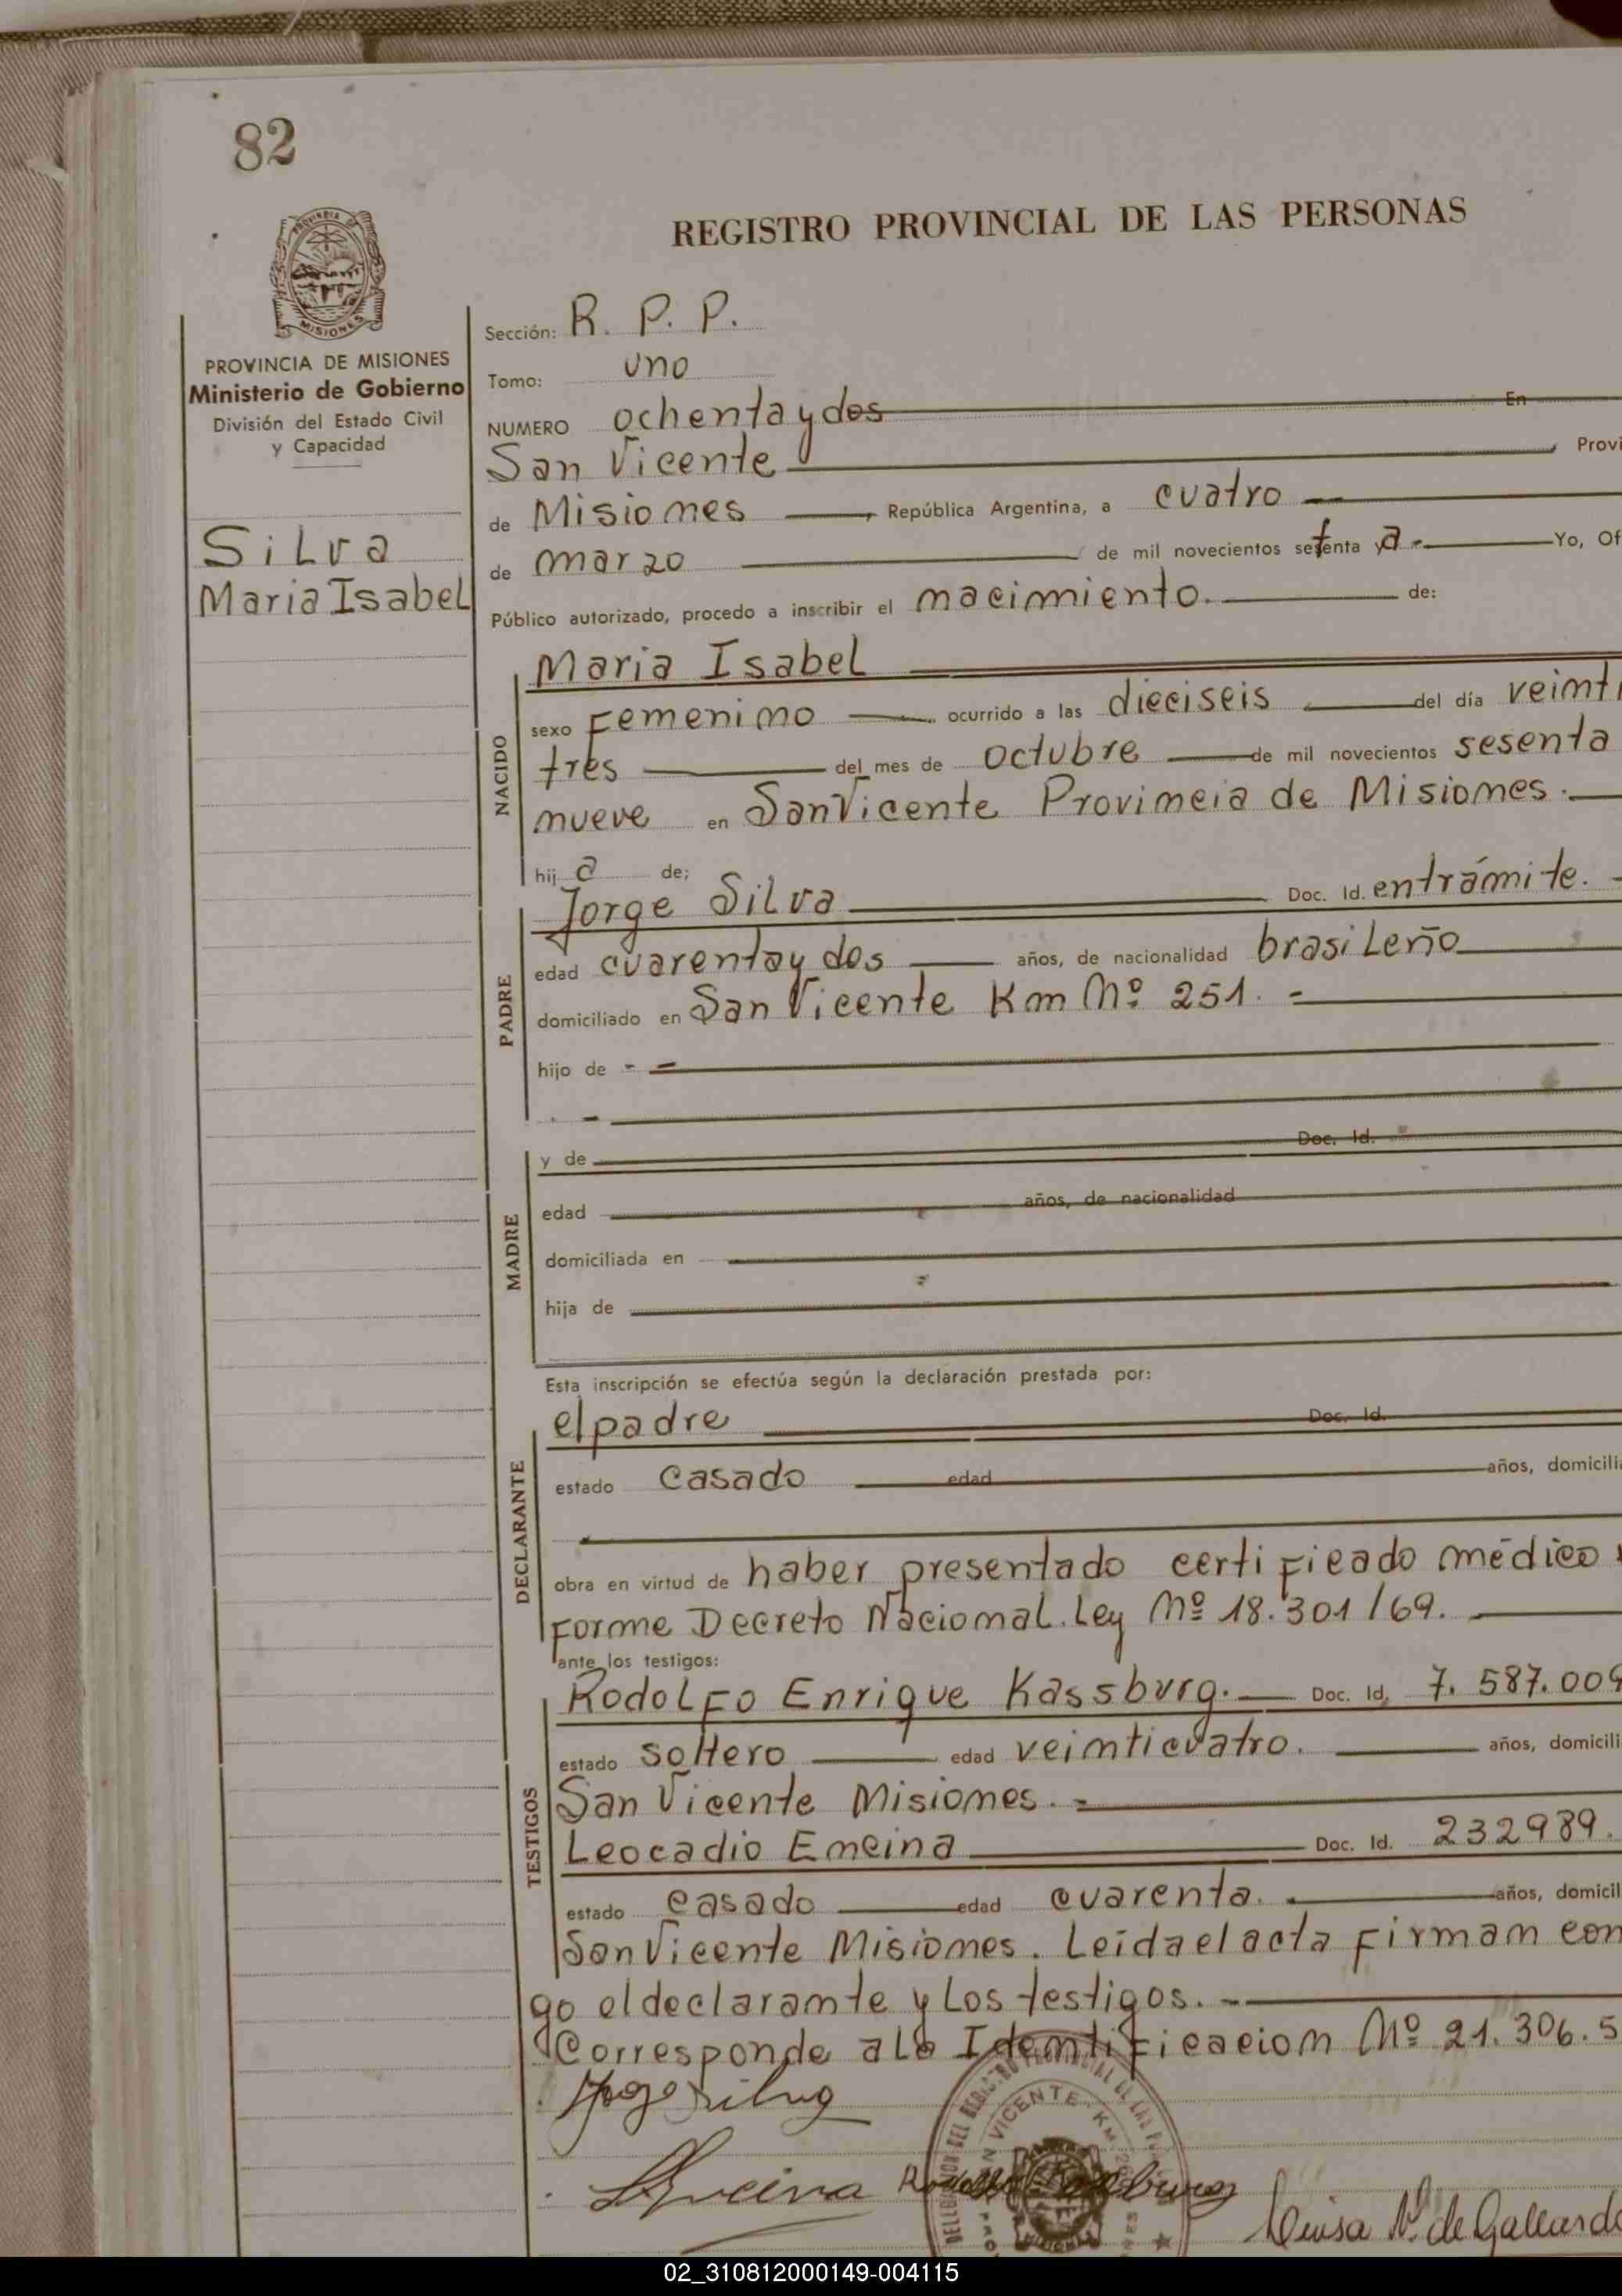 82
REGISTRO PROVINCIAL DE LAS PERSONAS
PROVINCIA DE MISIONES
Ministerio de Gobierno
División del Estado Civil
y Capacidad
Silva
Maria Isabel
Sección: R. P. P.
Tomo: uno
NUMERO ochenta y dos En
San Vicente , Provi
de Misiones , República Argentina, a cuatro
de marzo de mil novecientos setenta Yo, Of
Público autorizado, procedo a inscribir el nacimiento. de:
NACIDO
Maria Isabel
sexo Femenino ocurrido a las dieciseis del día veinti
tres del mes de octubre de mil novecientos sesenta
nueve en San Vicente Provincia de Misiones.
hij a de;
PADRE
Jorge Silva Doc. Id. en trámite.
edad cuarenta y dos años, de nacionalidad brasileño
domiciliado en San Vicente Km Nº 251.
hijo de
MADRE
y de Doc. Id.
edad años, de nacionalidad
domiciliada en
hija de
Esta inscripción se efectúa según la declaración prestada por:
DECLARANTE
el padre Doc. Id.
estado casado edad años, domicili
obra en virtud de haber presentado certificado médico
forme Decreto Nacional. Ley Nº 18.301/69.
ante los testigos:
TESTIGOS
Rodolfo Enrique Kassburg. Doc. Id. 7.587.009
estado soltero edad veinticuatro. años, domicili
San Vicente Misiones.
Leocadio Encina Doc. Id. 232989.
estado casado edad cuarenta. años, domicil
San Vicente Misiones. Leída el acta firman con
go el declarante y los testigos.
Corresponde a la Identificacion Nº 21.306.5
Jorge Silva
Encina
Luisa N. de Gallardo
02_310812000149-004115